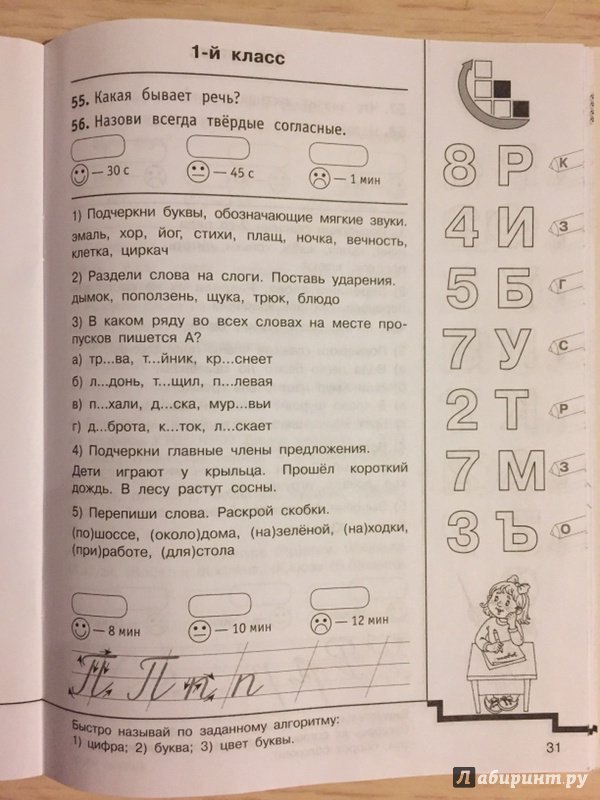 1-й класс
55. Какая бывает речь?
56. Назови всегда твёрдые согласные.
— 30 с — 45 с — 1 мин
1) Подчеркни буквы, обозначающие мягкие звуки.
эмаль, хор, йог, стихи, плащ, ночка, вечность,
клетка, циркач
2) Раздели слова на слоги. Поставь ударения.
дымок, поползень, щука, трюк, блюдо
3) В каком ряду во всех словах на месте про-
пусков пишется А?
а) тр...ва, т...йник, кр...снеет
б) л...донь, т...щил, п...левая
в) п...хали, д...ска, мур...вьи
г) д...брота, к...ток, л...скает
4) Подчеркни главные члены предложения.
Дети играют у крыльца. Прошёл короткий
дождь. В лесу растут сосны.
5) Перепиши слова. Раскрой скобки.
(по)шоссе, (около)дома, (на)зелёной, (на)ходки,
(при)работе, (для)стола
— 8 мин — 10 мин — 12 мин
П П п п
8 Р К
4 И З
5 Б Г
7 У С
2 Т Р
7 М З
3 Ъ О
Быстро называй по заданному алгоритму:
1) цифра; 2) буква; 3) цвет буквы.
31
Лабиринт.ру